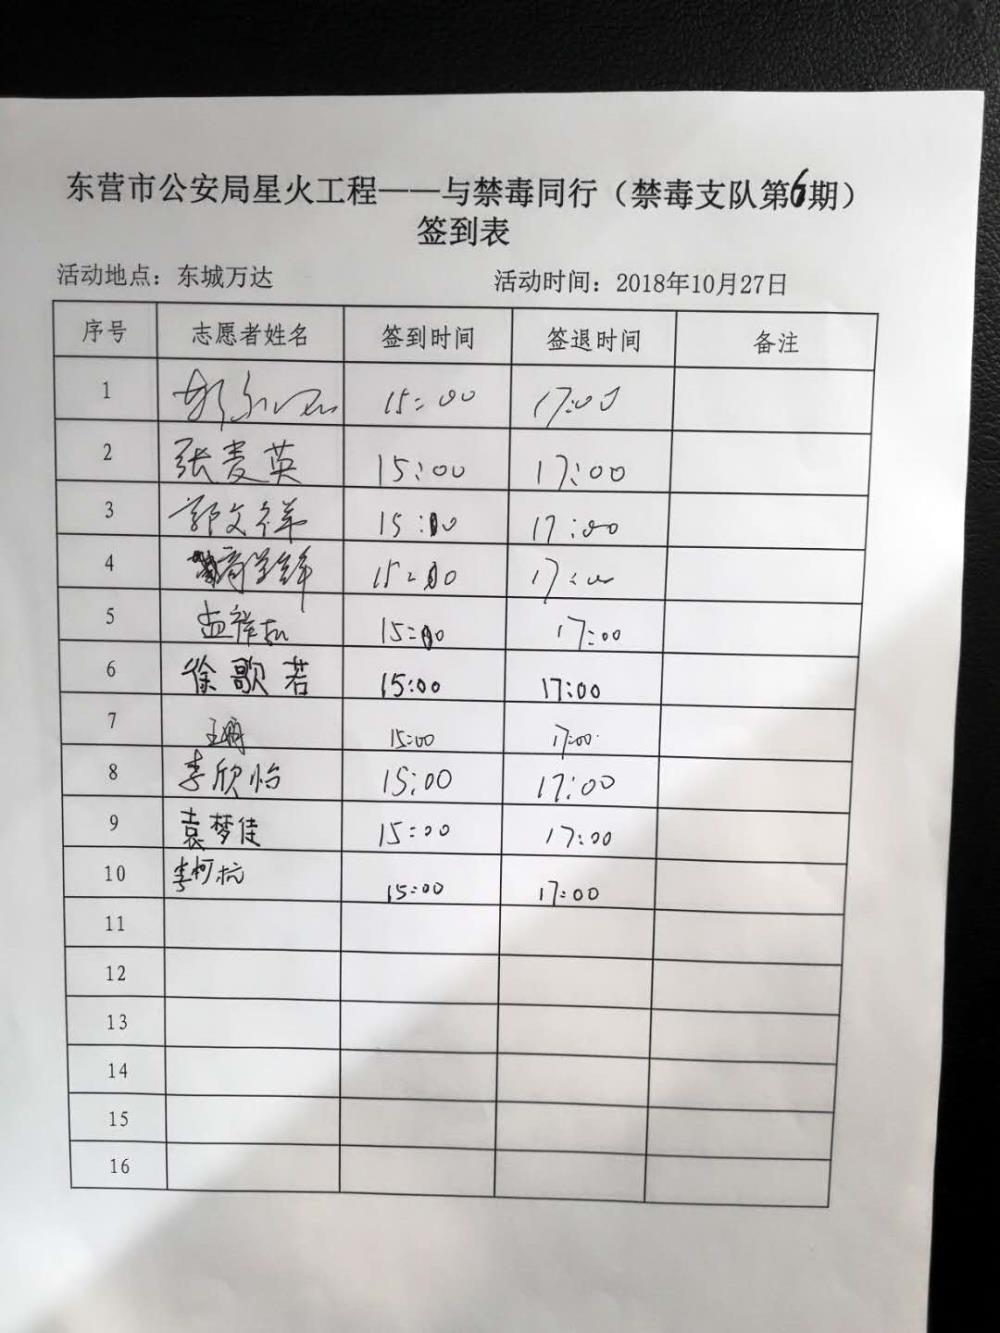 东营市公安局星火工程——与禁毒同行（禁毒支队第6期）
签到表
活动地点：东城万达 活动时间：2018年10月27日
序号 志愿者姓名 签到时间 签退时间 备注
1 15:00 17:00
2 张麦英 15:00 17:00
3 郭文祥 15:00 17:00
4 15:00 17:00
5 孟祥 15:00 17:00
6 徐歌若 15:00 17:00
7 王 15:00 17:00
8 李欣怡 15:00 17:00
9 袁梦佳 15:00 17:00
10 李柯杭 15:00 17:00
11
12
13
14
15
16